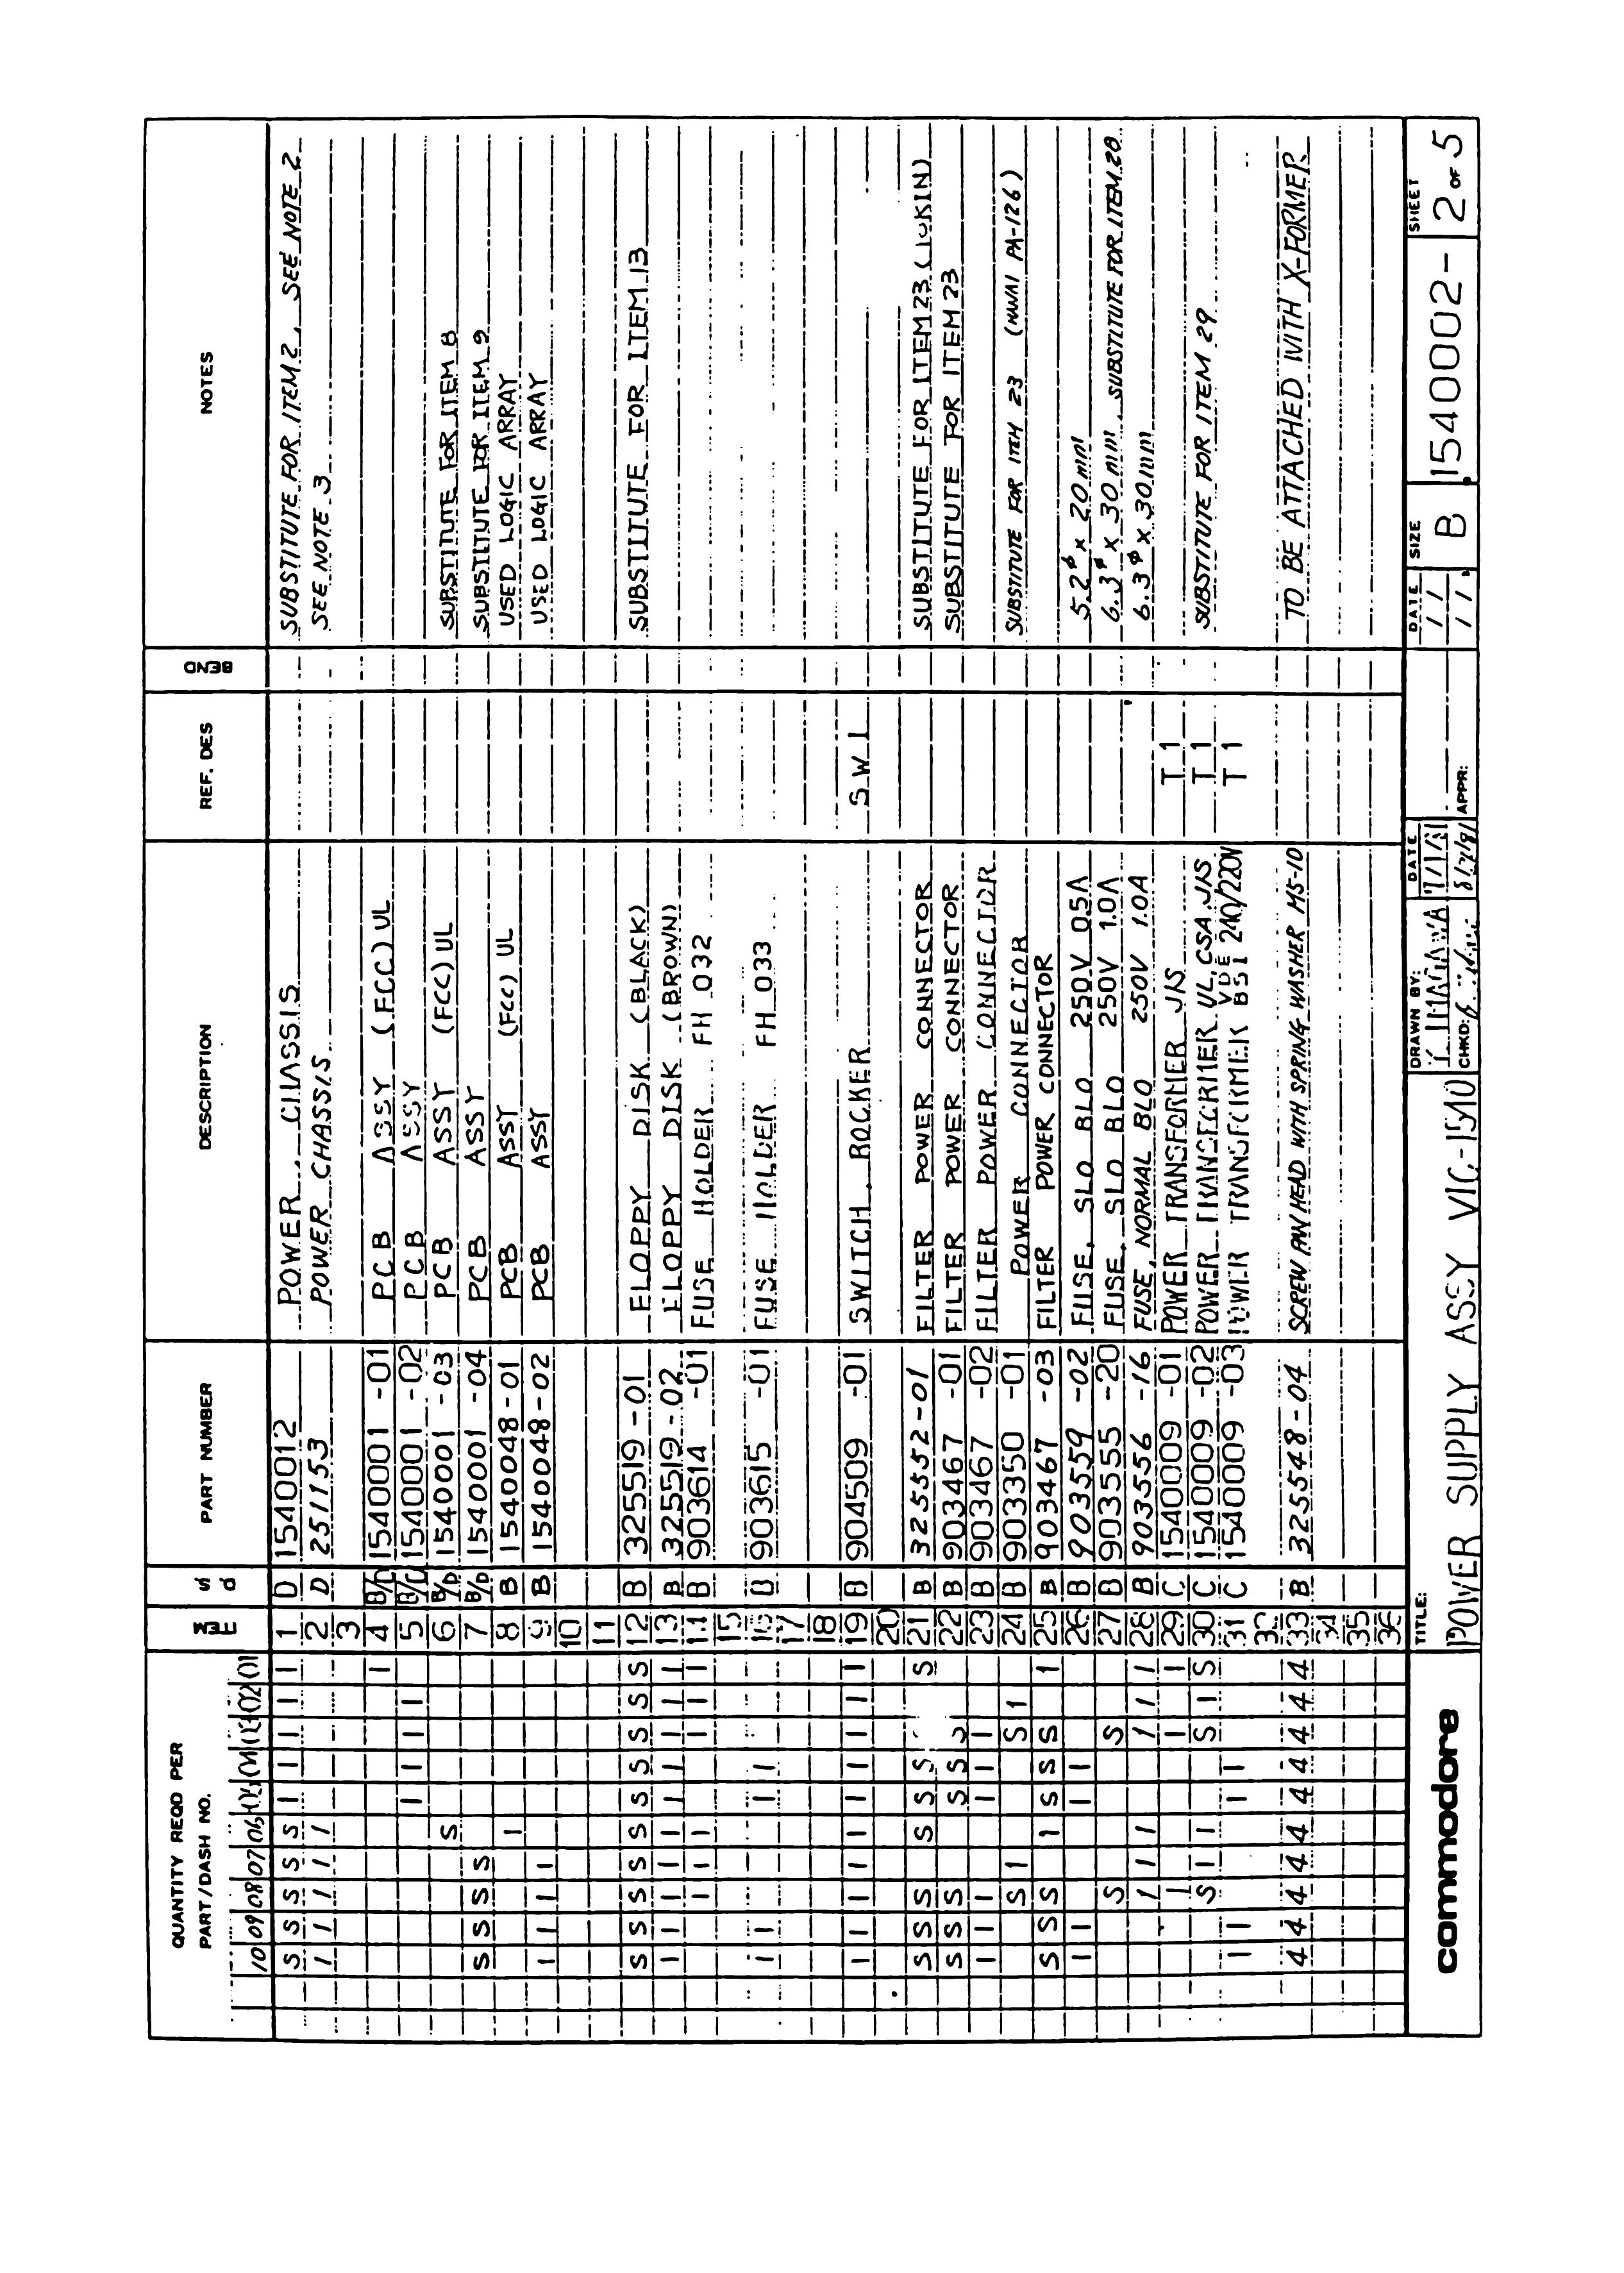 QUANTITY REQD PER PART/DASH NO. ITEM PART NUMBER DESCRIPTION REF. DES BEND NOTES
10 09 08 07 06 02 01
S S S S S 1 1 1 1 1 1 D 1540012 POWER CHASSIS SUBSTITUTE FOR ITEM 2, SEE NOTE 2
1 1 1 1 1 2 D 251153 POWER CHASSIS SEE NOTE 3
3
1 4 B/D 1540001 -01 PCB ASSY (FCC) UL
1 1 1 1 5 B/D 1540001 -02 PCB ASSY
S 6 B/D 1540001 -03 PCB ASSY (FCC) UL SUBSTITUTE FOR ITEM 8
S S S S 7 B/D 1540001 -04 PCB ASSY SUBSTITUTE FOR ITEM 9
1 8 B 1540048-01 PCB ASSY (FCC) UL USED LOGIC ARRAY
1 1 1 1 9 B 1540048-02 PCB ASSY USED LOGIC ARRAY
10
11
S S S S S S S S S S 12 B 325519-01 FLOPPY DISK (BLACK) SUBSTITUTE FOR ITEM 13
1 1 1 1 1 1 1 1 1 1 13 B 325519-02 FLOPPY DISK (BROWN)
1 1 1 1 1 1 14 B 903614 -01 FUSE HOLDER FH 032
15
1 1 1 1 16 B 903615 -01 FUSE HOLDER FH 033
17
18
1 1 1 1 1 1 1 1 1 1 19 B 904509 -01 SWITCH, ROCKER SW 1
20
S S S S S S S 21 B 325552-01 FILTER POWER CONNECTOR SUBSTITUTE FOR ITEM 23
S S S S S S 22 B 903467 -01 FILTER POWER CONNECTOR SUBSTITUTE FOR ITEM 23
1 1 1 1 1 1 23 B 903467 -02 FILTER POWER CONNECTOR
S 1 S 1 24 B 903350 -01 POWER CONNECTOR
S S S 1 S S S 1 25 B 903467 -03 FILTER POWER CONNECTOR SUBSTITUTE FOR ITEM 23 PA-126)
1 1 1 1 26 B 903559 -02 FUSE, SLO BLO 250V 0.5A 5.2ø x 20mm
S S 27 B 903555 -20 FUSE, SLO BLO 250V 1.0A 6.3ø x 30mm, SUBSTITUTE FOR ITEM 28
1 1 1 1 1 1 28 B 903556 -16 FUSE, NORMAL BLO 250V 1.0A 6.3ø x 30mm
1 1 1 29 C 1540009 -01 POWER TRANSFORMER JIS T 1
S 1 1 S 1 S 30 C 1540009 -02 POWER TRANSFORMER UL, CSA, JIS T 1 SUBSTITUTE FOR ITEM 29
1 1 1 1 31 C 1540009 -03 POWER TRANSFORMER VDE BSI 240/220V T 1
32
4 4 4 4 4 4 4 4 4 4 33 B 325548-04 SCREW PAN HEAD WITH SPRING WASHER M5-10 TO BE ATTACHED WITH X-FORMER
34
35
36
commodore
TITLE:
POWER SUPPLY ASSY VIC-1540
DRAWN BY:
CHKD:
DATE
APPR:
DATE
SIZE
B
1540002-
SHEET
2 OF 5